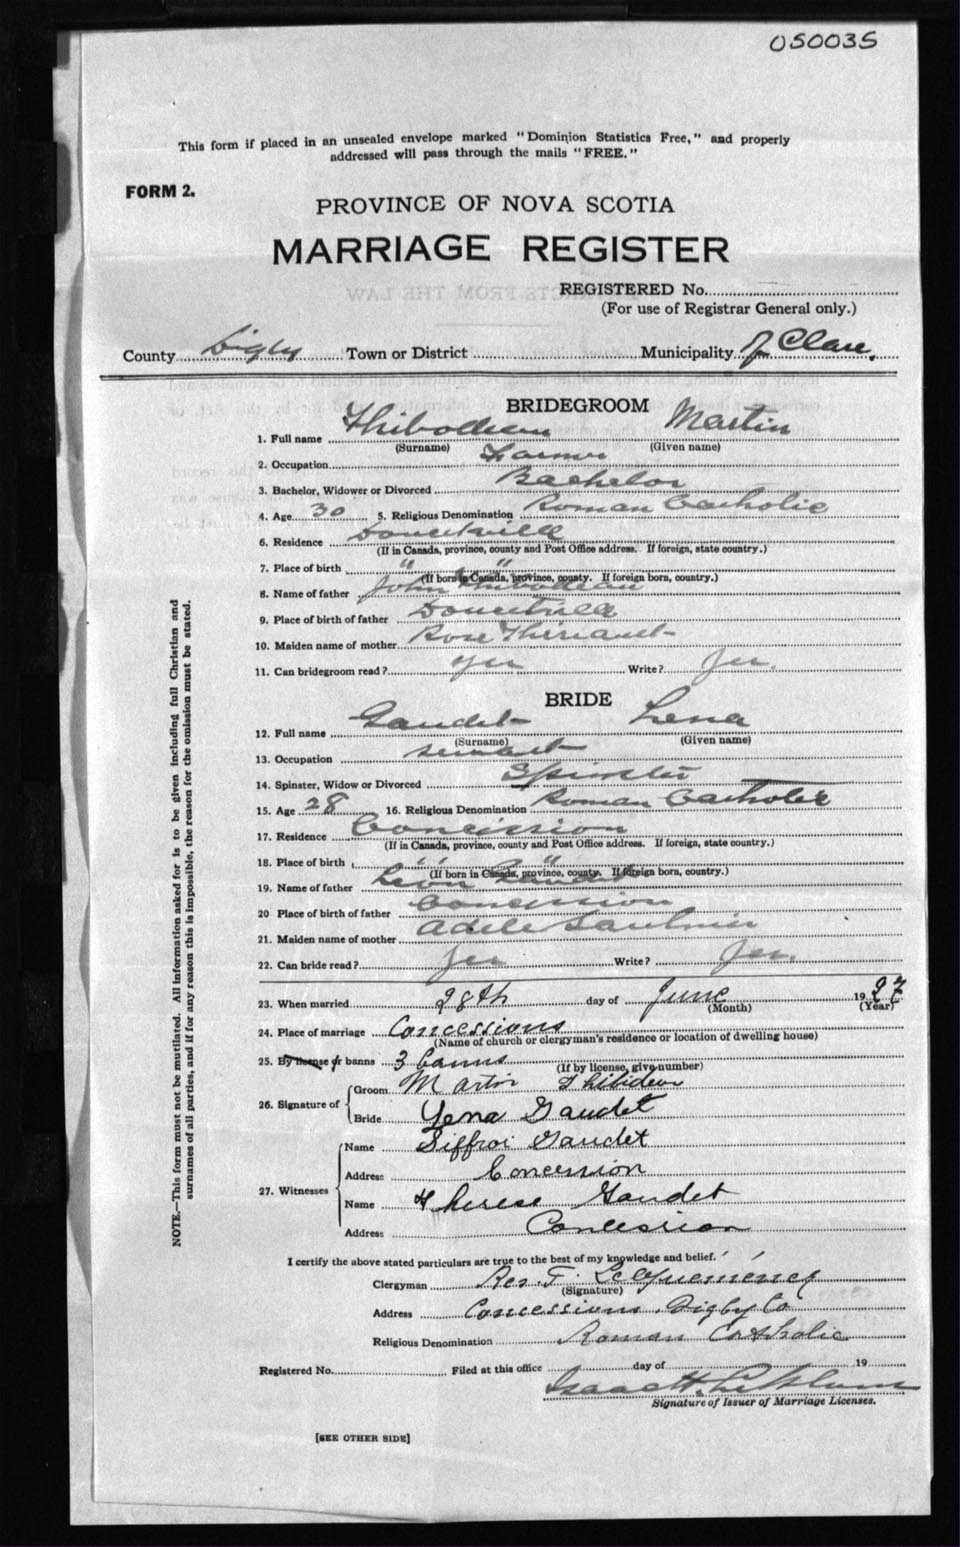 050035
This form if placed in an unsealed envelope marked "Dominion Statistics Free," and properly
addressed will pass through the mails "FREE."
FORM 2.
PROVINCE OF NOVA SCOTIA
MARRIAGE REGISTER
REGISTERED No.
(For use of Registrar General only.)
County Digby Town or District Municipality Clare.
BRIDEGROOM
1. Full name Thibodeau Martin
(Surname) (Given name)
2. Occupation Farmer
3. Bachelor, Widower or Divorced Bachelor
4. Age 30 5. Religious Denomination Roman Catholic
6. Residence Doucetville
(If in Canada, province, county and Post Office address. If foreign, state country.)
7. Place of birth " "
(If born in Canada, province, county. If foreign born, country.)
8. Name of father John Thibodeau
9. Place of birth of father Doucetville
10. Maiden name of mother Rose Theriault
11. Can bridegroom read? Yes Write? Yes.
BRIDE
12. Full name Gaudet Lena
(Surname) (Given name)
13. Occupation servant
14. Spinster, Widow or Divorced Spinster
15. Age 28 16. Religious Denomination Roman Catholic
17. Residence Concission
(If in Canada, province, county and Post Office address. If foreign, state country.)
18. Place of birth " "
(If born in Canada, province, county. If foreign born, country.)
19. Name of father Léon Gaudet
20 Place of birth of father Concession
21. Maiden name of mother Adele Saulnier
22. Can bride read? Yes Write? Yes.
23. When married 28th day of June 1927
(Month) (Year)
24. Place of marriage Concessions
(Name of church or clergyman's residence or location of dwelling house)
25. By license or banns 3 banns
(If by license, give number)
26. Signature of Groom Martin Thibideau
Bride Lena Gaudet
27. Witnesses Name Siffroi Gaudet
Address Concession
Name Therese Gaudet
Address Concession
I certify the above stated particulars are true to the best of my knowledge and belief.
Clergyman Rev. F. LeQuemener
(Signature)
Address Concessions. Digby Co
Religious Denomination Roman Catholic
Registered No. Filed at this office day of 19
Isaac H.
Signature of Issuer of Marriage Licenses.
[SEE OTHER SIDE]
NOTE.—This form must not be mutilated. All information asked for is to be given including full Christian and
surnames of all parties, and if for any reason this is impossible, the reason for the omission must be stated.